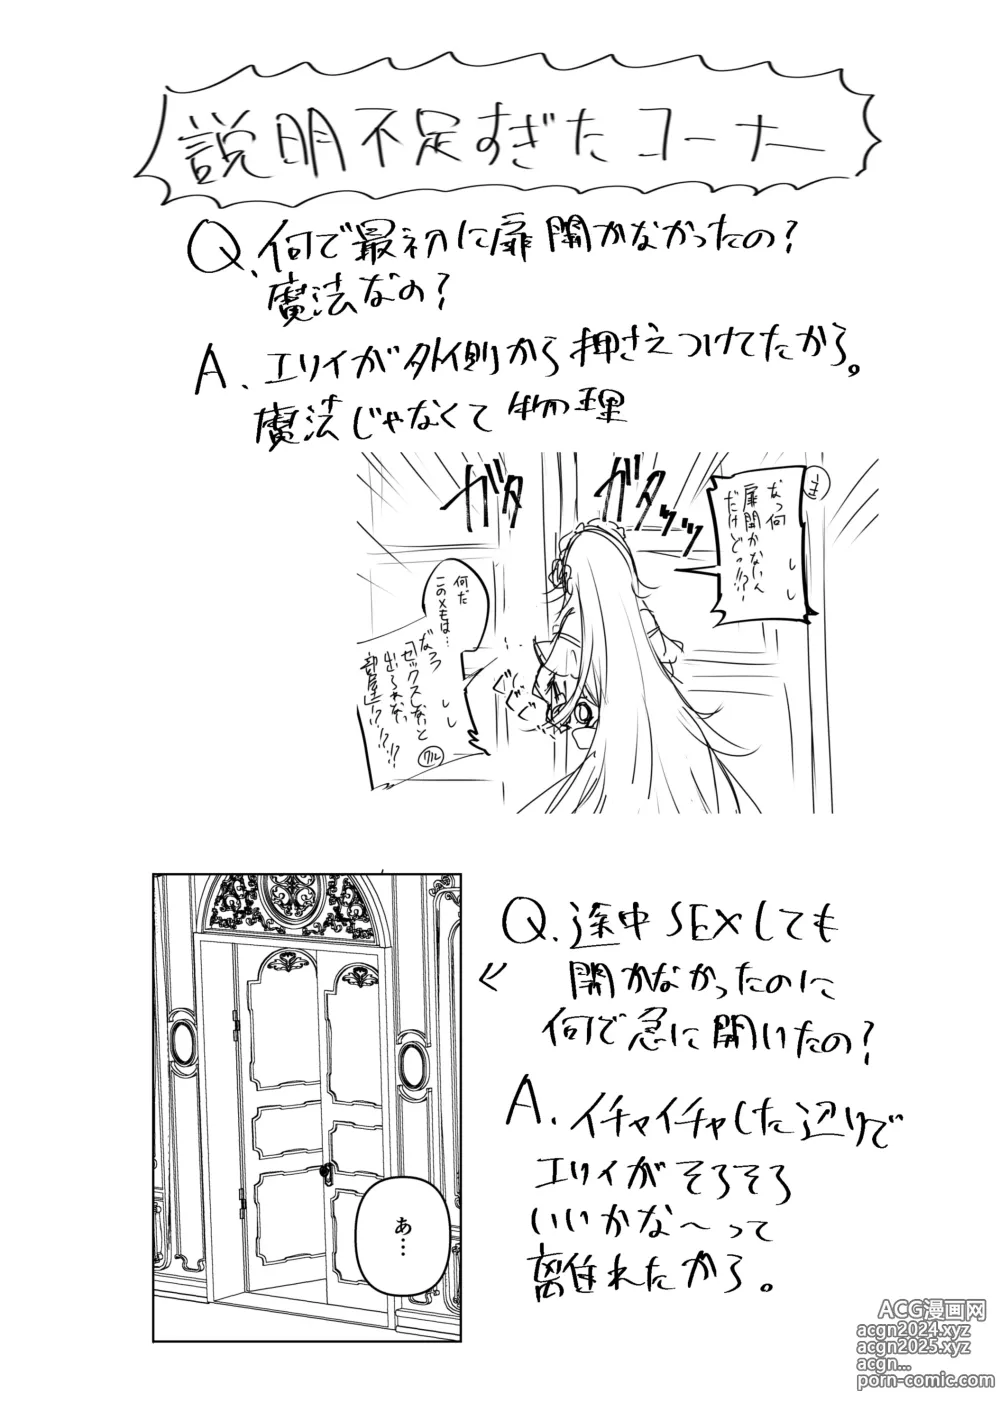 説明不足すぎたコーナー
Q.何で最初に扉開かなかったの?
魔法なの?
A.エリイが外側から押さえつけてたから。
魔法じゃなくて物理
ガタ
ガタッッ
なっ何
扉開かないん
だけどっ!!?
何だ
このメモは…
なっ
「セックスしないと
出られない
部屋」!?!?!?
ぐぐぐ
Q.途中SEXしても
開かなかったのに
何で急に開いたの?
A.イチャイチャした辺りで
エリイがそろそろ
いいかな〜って
離れたから。
あ…
ACG漫画网
acgn2024.xyz
acgn2025.xyz
acgn...
porn-comic.com